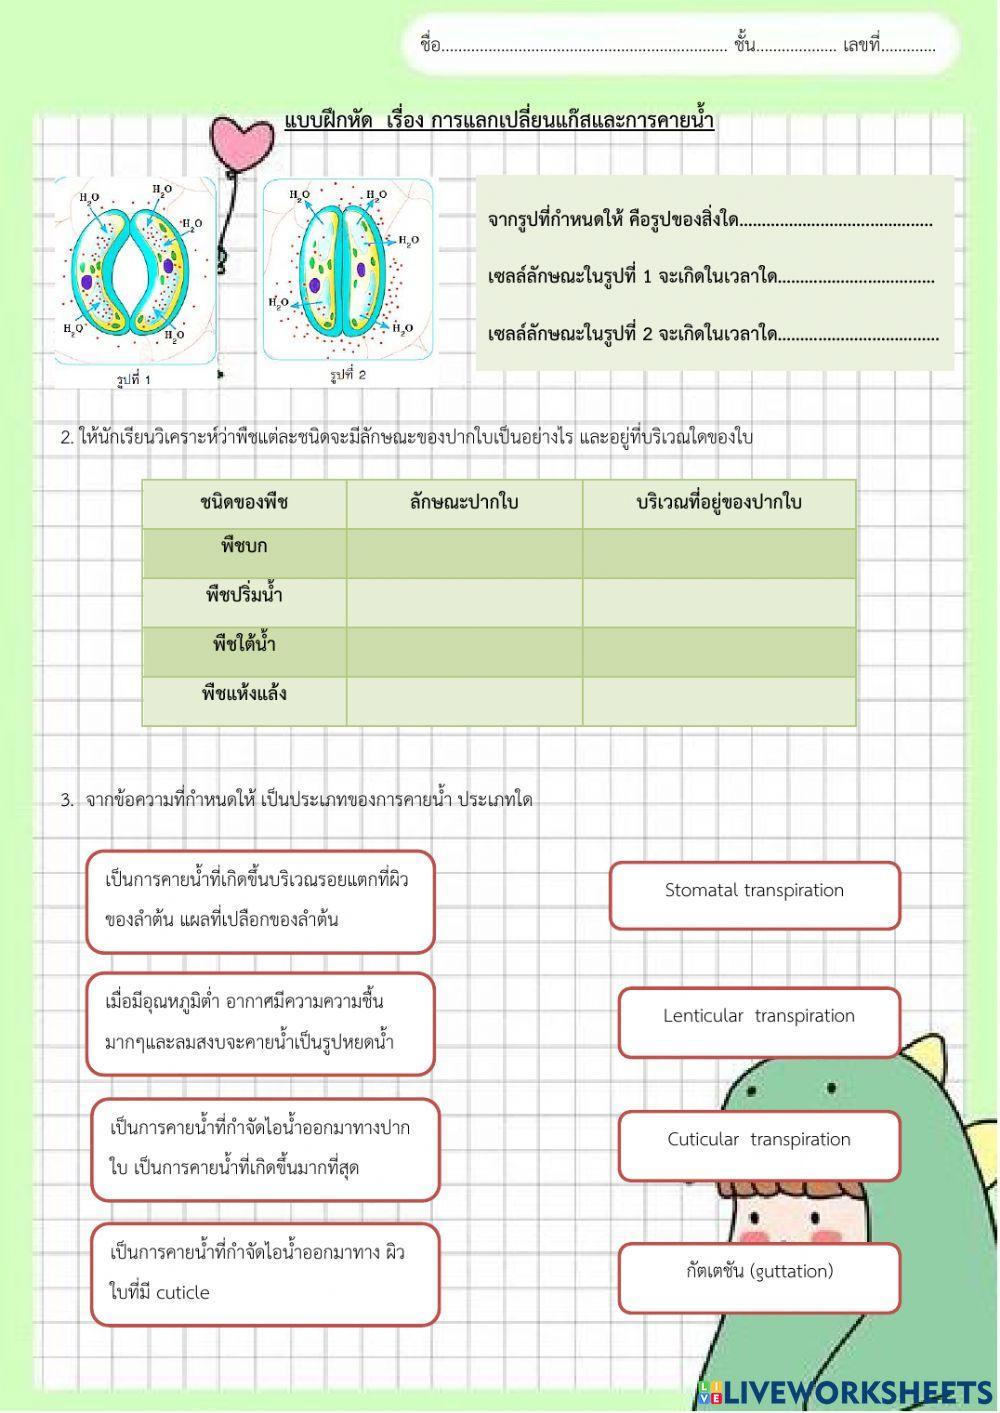 ชื่อ.................................................................... ชั้น................... เลขที่.............
แบบฝึกหัด เรื่อง การแลกเปลี่ยนแก๊สและการคายน้ำ
H2O H2O H2O H2O H2O
รูปที่ 1
H2O H2O H2O H2O H2O
รูปที่ 2
จากรูปที่กำหนดให้ คือรูปของสิ่งใด...........................................
เซลล์ลักษณะในรูปที่ 1 จะเกิดในเวลาใด...................................
เซลล์ลักษณะในรูปที่ 2 จะเกิดในเวลาใด....................................
2. ให้นักเรียนวิเคราะห์ว่าพืชแต่ละชนิดจะมีลักษณะของปากใบเป็นอย่างไร และอยู่ที่บริเวณใดของใบ
ชนิดของพืช ลักษณะปากใบ บริเวณที่อยู่ของปากใบ
พืชบก
พืชปริ่มน้ำ
พืชใต้น้ำ
พืชแห้งแล้ง
3. จากข้อความที่กำหนดให้ เป็นประเภทของการคายน้ำ ประเภทใด
เป็นการคายน้ำที่เกิดขึ้นบริเวณรอยแตกที่ผิว
ของลำต้น แผลที่เปลือกของลำต้น
Stomatal transpiration
เมื่อมีอุณหภูมิต่ำ อากาศมีความความชื้น
มากๆและลมสงบจะคายน้ำเป็นรูปหยดน้ำ
Lenticular transpiration
เป็นการคายน้ำที่กำจัดไอน้ำออกมาทางปาก
ใบ เป็นการคายน้ำที่เกิดขึ้นมากที่สุด
Cuticular transpiration
เป็นการคายน้ำที่กำจัดไอน้ำออกมาทาง ผิว
ใบที่มี cuticle
กัตเตชัน (guttation)
LIVE LIVEWORKSHEETS